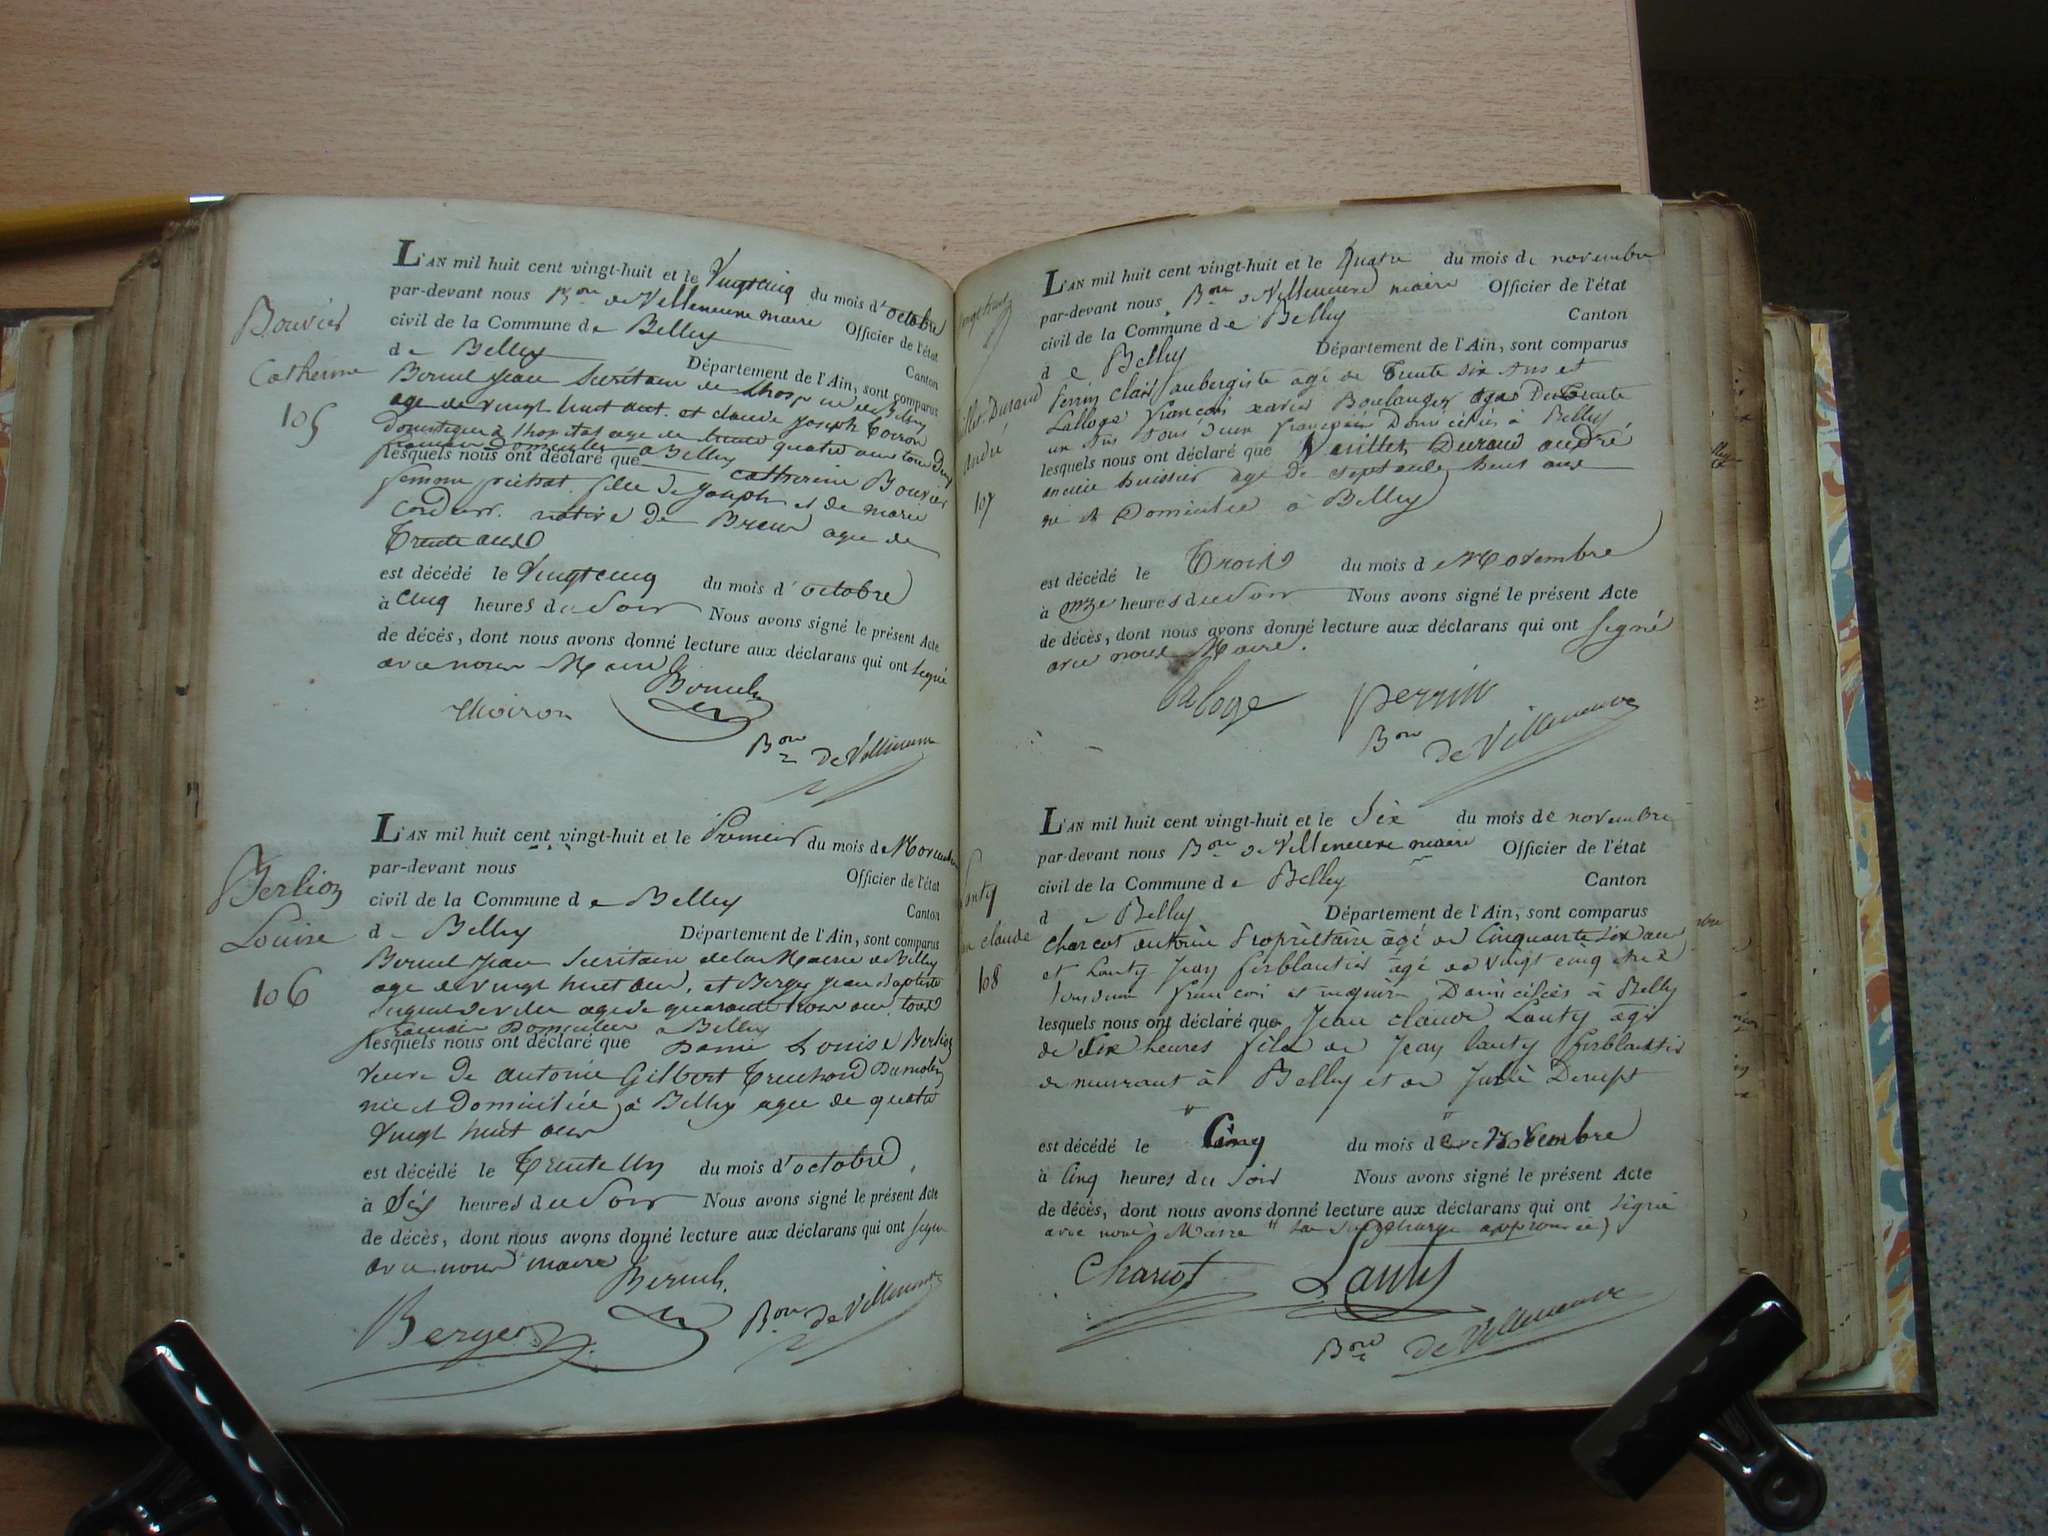 Bouvier
Catherine
105
L'AN mil huit cent vingt-huit et le Vingtcinq du mois d'octobre
par-devant nous Bon de Villeneuve maire Officier de l'état
civil de la Commune de Belley Canton
de Belley Département de l'Ain, sont comparus
Jean Secritaire de
age de vingt huit ans et claude joseph
domestique à l'hopital age de trente quatre ans tous deux
francais Domicilies a Belley
lesquels nous ont déclaré que Catherine Bouvier
femme fille de Joseph et de marie
native de agee de
Trente ans
est décédé le Vingtcinq du mois d'octobre
à Cinq heures du Soir Nous avons signé le présent Acte
de décès, dont nous avons donné lecture aux déclarans qui ont signé
avec nous Maire
Bon de Villeneuve
Berlioz
Louise
106
L'AN mil huit cent vingt-huit et le Premier du mois de Novembre
par-devant nous Officier de l'état
civil de la Commune de Belley Canton
de Belley Département de l'Ain, sont comparus
Jean Secritaire de la Mairie de Belley
age de vingt huit ans, et Berger jean Baptiste
age de quarante ans tous
francais Domicilies a Belley
lesquels nous ont déclaré que Dame Louise Berlioz
veuve de antoine Gilbert
née et Domiciliée à Belley agee de quatre
vingt huit ans
est décédé le Trente Un du mois d'octobre,
à heures du Soir Nous avons signé le présent Acte
de décès, dont nous avons donné lecture aux déclarans qui ont signé
avec nous maire
Berger
Bon de Villeneuve
Durand
André
107
L'AN mil huit cent vingt-huit et le Quatre du mois de novembre
par-devant nous Bon de Villeneuve maire Officier de l'état
civil de la Commune de Belley Canton
de Belley Département de l'Ain, sont comparus
Perrin Clair aubergiste âgé de Trente Six Ans et
Laloge François xavier Boulanger agé De Trente
un Ans tous deux français Domiciliés à Belley
lesquels nous ont déclaré que Durand andré
ancien huissier agé de Septante huit ans
né et Domicilié à Belley
est décédé le Trois du mois de Novembre
à onze heures du Soir Nous avons signé le présent Acte
de décès, dont nous avons donné lecture aux déclarans qui ont Signé
avec nous Maire.
Laloge perrin
Bon de Villeneuve
Lanty
claude
108
L'AN mil huit cent vingt-huit et le Six du mois de novembre
par-devant nous Bon de Villeneuve maire Officier de l'état
civil de la Commune de Belley Canton
de Belley Département de l'Ain, sont comparus
Charcot antoine Propriétaire âgé de Cinquante Six ans
et Lanty Jean ferblantier âgé de vingt cinq ans
tous deux francais et majeurs Domiciliés à Belley
lesquels nous ont déclaré que Jean claude Lanty agé
de Six heures fils de Jean Lanty ferblantier
demeurant à Belley et de Julie
est décédé le Cinq du mois de Novembre
à Cinq heures du Soir Nous avons signé le présent Acte
de décès, dont nous avons donné lecture aux déclarans qui ont Signé
avec nous Maire la Surcharge approuvée
Charcot Lanty
Bon de Villeneuve